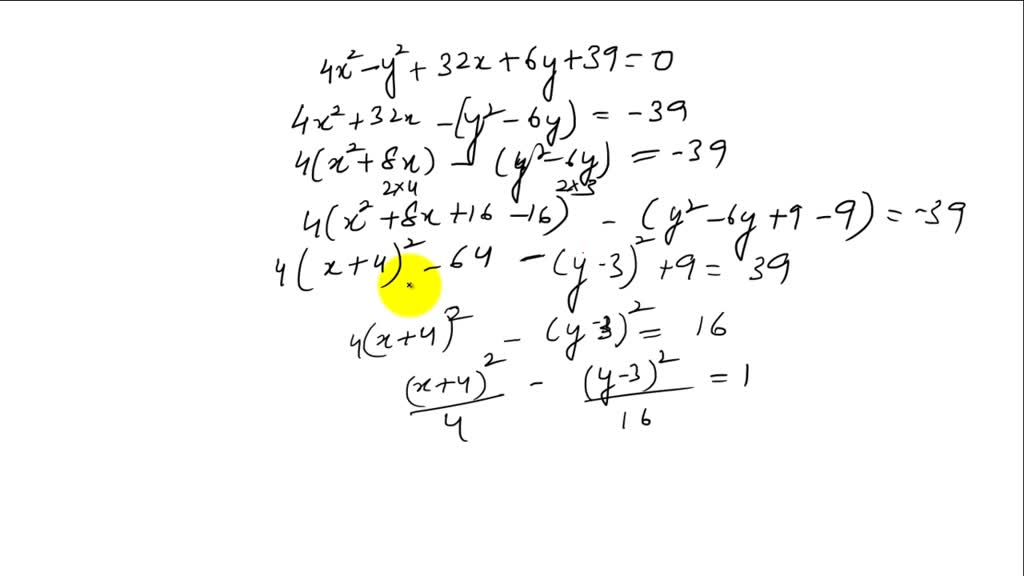 4x² - y² + 32x + 6y + 39 = 0
4x² + 32x - (y² - 6y) = -39
4(x² + 8x) - (y² - 6y) = -39
2×4 2×3
4(x² + 8x + 16 - 16) - (y² - 6y + 9 - 9) = -39
4(x + 4)² - 64 - (y - 3)² + 9 = 39
4(x + 4)² - (y - 3)² = 16
(x + 4)²/4 - (y - 3)²/16 = 1